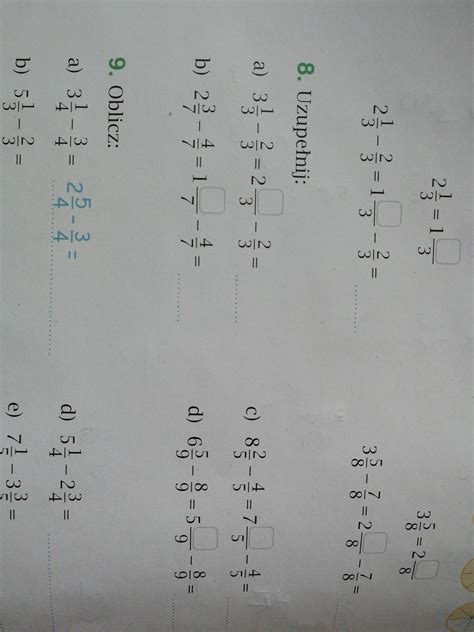 2 1/3 = 1 □/3    3 5/8 = 2 □/8
2 1/3 − 2/3 = 1 □/3 − 2/3 =    3 5/8 − 7/8 = 2 □/8 − 7/8 =
8. Uzupełnij:
a) 3 1/3 − 2/3 = 2 □/3 − 2/3 =    c) 8 2/5 − 4/5 = 7 □/5 − 4/5 =
b) 2 3/7 − 4/7 = 1 □/7 − 4/7 =    d) 6 5/9 − 8/9 = 5 □/9 − 8/9 =
9. Oblicz:
a) 3 1/4 − 3/4 = 2 5/4 − 3/4 =    d) 5 1/4 − 2 3/4 =
b) 5 1/3 − 2/3 =    e) 7 1/5 − 3 3/5 =